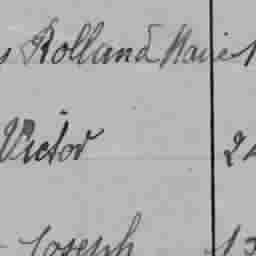 Rolland Marie
Victor 2
Joseph 13